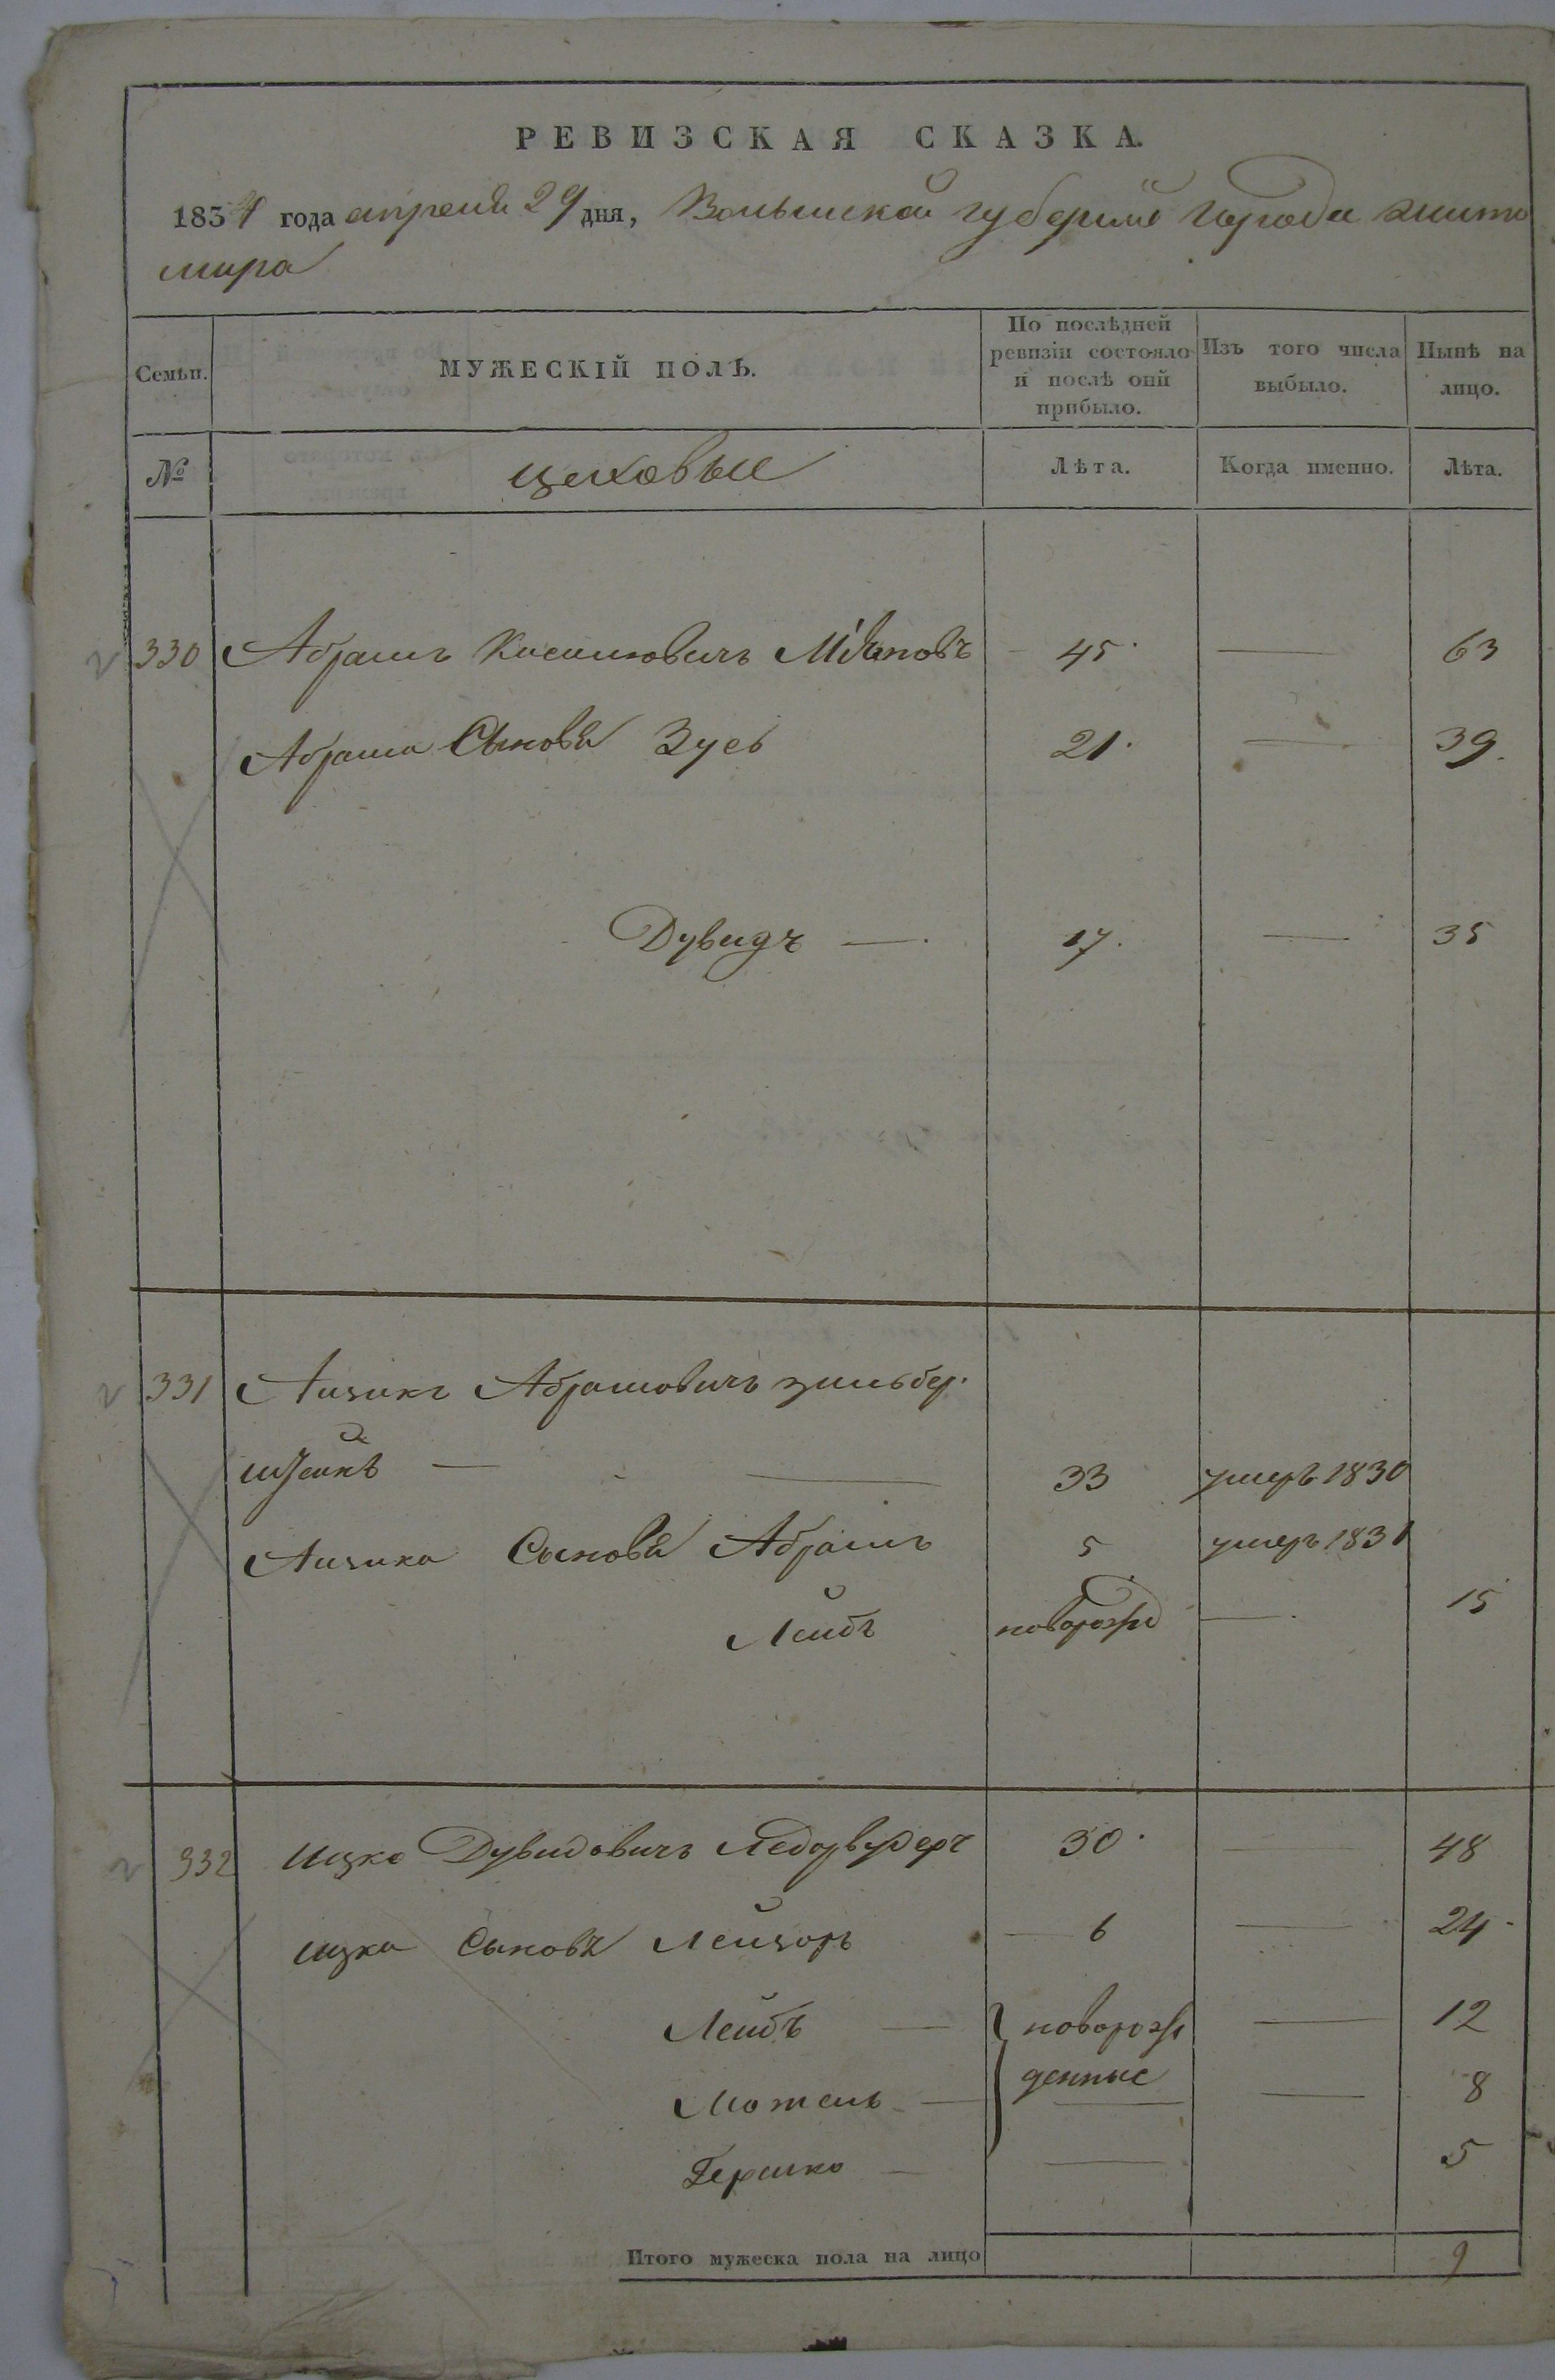 РЕВИЗСКАЯ СКАЗКА.
1834 года апреля 29 дня, Волынской губерніи города Жито
мира
Семьи. МУЖЕСКІЙ ПОЛЪ. По послѣдней ревизіи состояло и послѣ оній прибыло. Изъ того числа выбыло. Нынѣ на лицо.
№ цеховые Лѣта. Когда именно. Лѣта.
330 Абрамъ 45 — 63
Абрама Сыновя Зусь 21 — 39
Дувидъ — 17 — 35
331 Аизикъ Абрамовичъ зильбер
штейнъ — 33 умеръ 1830
Аизика Сыновя Абрамъ 5 умеръ 1831
Лейбъ новорож — 15
332 Ицко Дувидовичъ 30 — 48
Ицка Сыновя Лейзоръ 6 — 24
Лейбъ — новорож — 12
Мотель — денные — 8
Гершко — 5
Итого мужеска пола на лицо 9